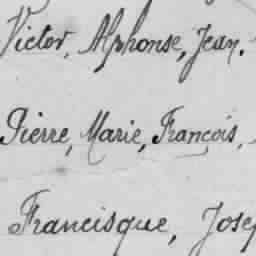 Victor, Alphonse, Jean.
Pierre, Marie, François,
Francisque, Josep